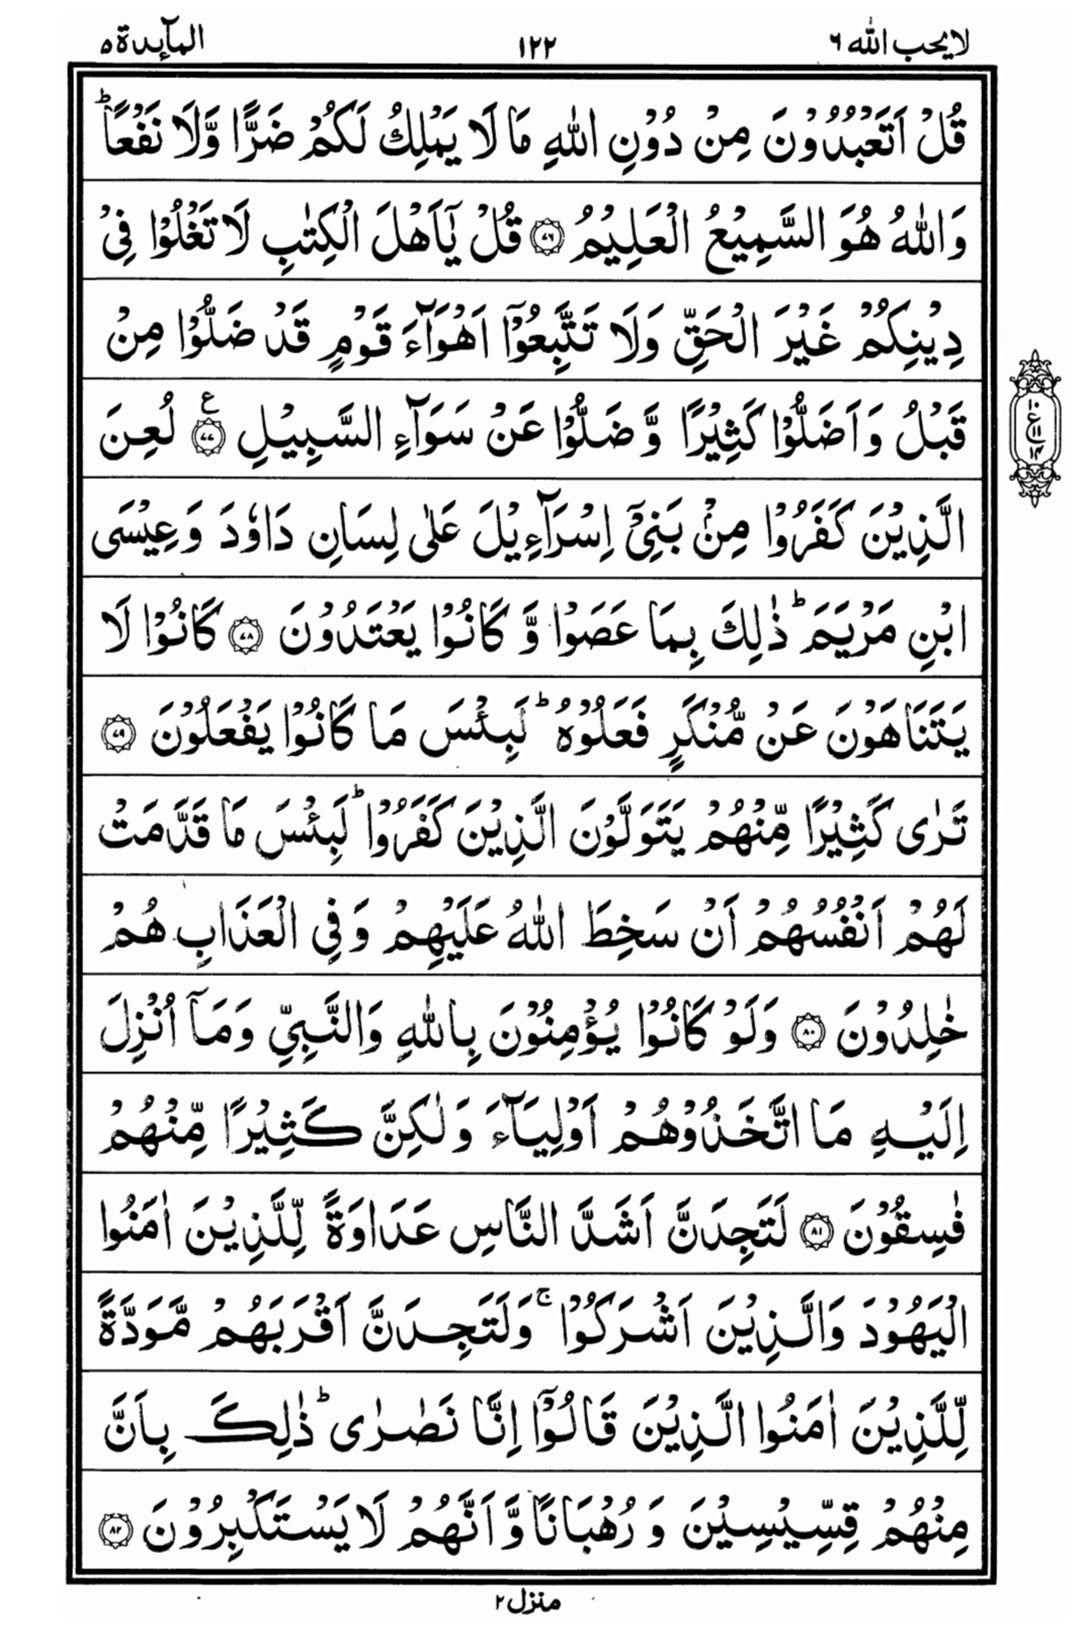 لايحب الله ٦
١٢٢
المآىِٕدة ٥
قُلْ اَتَعْبُدُوْنَ مِنْ دُوْنِ اللّٰهِ مَا لَا يَمْلِكُ لَكُمْ ضَرًّا وَّلَا نَفْعًا ؕ
وَاللّٰهُ هُوَ السَّمِيْعُ الْعَلِيْمُ ۝٧٦ قُلْ يٰۤاَهْلَ الْكِتٰبِ لَا تَغْلُوْا فِيْ
دِيْنِكُمْ غَيْرَ الْحَقِّ وَلَا تَتَّبِعُوْۤا اَهْوَآءَ قَوْمٍ قَدْ ضَلُّوْا مِنْ
قَبْلُ وَاَضَلُّوْا كَثِيْرًا وَّضَلُّوْا عَنْ سَوَآءِ السَّبِيْلِ ۝٧٧ ع لُعِنَ
الَّذِيْنَ كَفَرُوْا مِنْۢ بَنِيْۤ اِسْرَآءِيْلَ عَلٰى لِسَانِ دَاوٗدَ وَعِيْسَى
ابْنِ مَرْيَمَ ؕ ذٰلِكَ بِمَا عَصَوْا وَّكَانُوْا يَعْتَدُوْنَ ۝٧٨ كَانُوْا لَا
يَتَنَاهَوْنَ عَنْ مُّنْكَرٍ فَعَلُوْهُ ؕ لَبِئْسَ مَا كَانُوْا يَفْعَلُوْنَ ۝٧٩
تَرٰى كَثِيْرًا مِّنْهُمْ يَتَوَلَّوْنَ الَّذِيْنَ كَفَرُوْا ؕ لَبِئْسَ مَا قَدَّمَتْ
لَهُمْ اَنْفُسُهُمْ اَنْ سَخِطَ اللّٰهُ عَلَيْهِمْ وَفِي الْعَذَابِ هُمْ
خٰلِدُوْنَ ۝٨٠ وَلَوْ كَانُوْا يُؤْمِنُوْنَ بِاللّٰهِ وَالنَّبِيِّ وَمَاۤ اُنْزِلَ
اِلَيْهِ مَا اتَّخَذُوْهُمْ اَوْلِيَآءَ وَلٰكِنَّ كَثِيْرًا مِّنْهُمْ
فٰسِقُوْنَ ۝٨١ لَتَجِدَنَّ اَشَدَّ النَّاسِ عَدَاوَةً لِّلَّذِيْنَ اٰمَنُوا
الْيَهُوْدَ وَالَّذِيْنَ اَشْرَكُوْا ۚ وَلَتَجِدَنَّ اَقْرَبَهُمْ مَّوَدَّةً
لِّلَّذِيْنَ اٰمَنُوا الَّذِيْنَ قَالُوْۤا اِنَّا نَصٰرٰى ؕ ذٰلِكَ بِاَنَّ
مِنْهُمْ قِسِّيْسِيْنَ وَرُهْبَانًا وَّاَنَّهُمْ لَا يَسْتَكْبِرُوْنَ ۝٨٢
١٠
ع
١١
١٤
منزل ٢